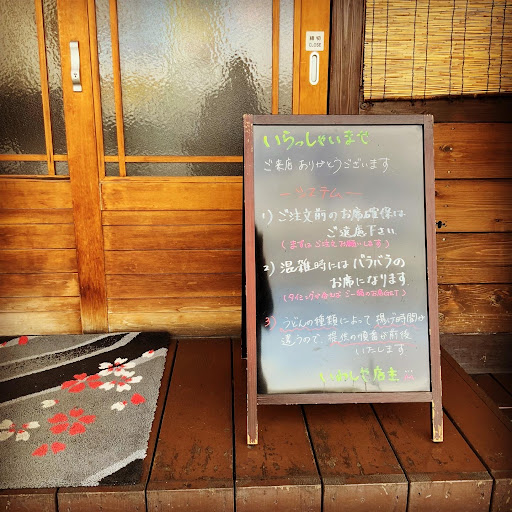 締切
CLOSE
いらっしゃいませ
ご来店ありがとうございます
システム
1) ご注文前のお席確保は
ご遠慮下さい
(まずはご注文お願いします)
2) 混雑時にはバラバラの
お席になります
3) うどんの種類によって揚げ時間が
違うので、提供の順番が前後
いたします
店主